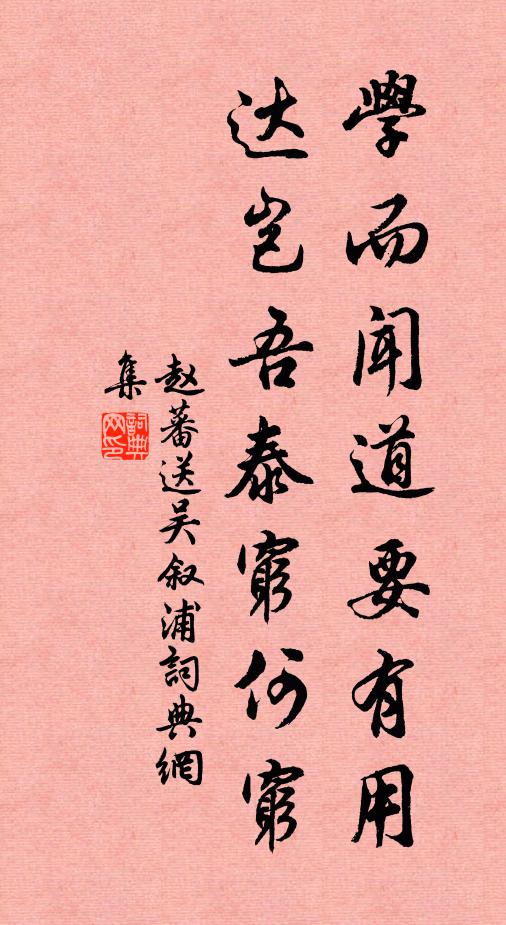 學而闻道要有用
达岂吾泰窮何窮
赵蕃送吴叙浦詞典網
集
詞典網印